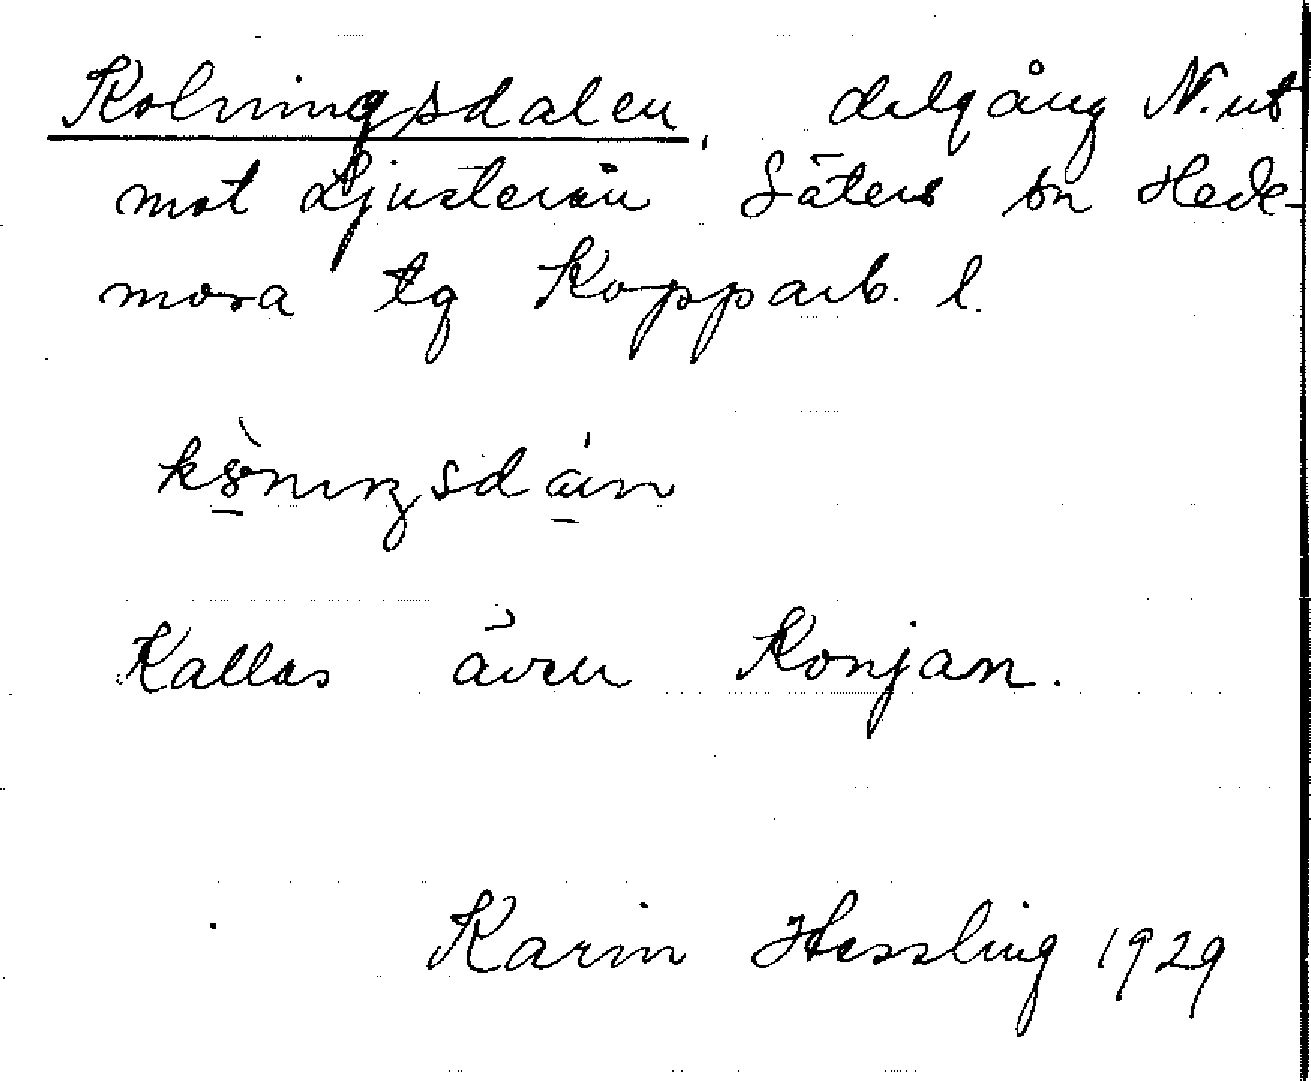 Kolningsdalen, dalgång N. ut
mot Ljusterån Säters sn Hede-
mora tg Kopparb. l.
Kallas även Konjan.
Karin Hessling 1929